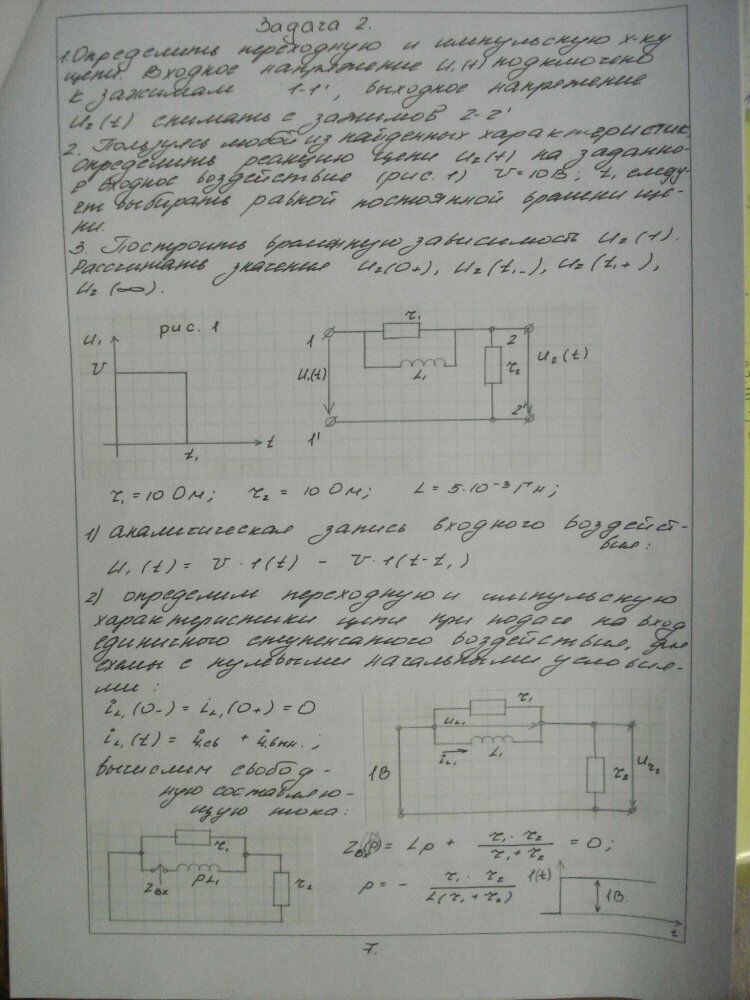 Задача 2.
1. Определить переходную и импульсную х-ку
цепи. Входное напряжение u₁(t) подключено
к зажимам 1-1', выходное напряжение
u₂(t) снимать с зажимов 2-2'
2. Пользуясь любой из найденных характеристик,
определить реакцию цепи u₂(t) на заданно-
е входное воздействие (рис. 1) V=10В; t₁ следу-
ет выбирать равной постоянной времени це-
пи.
3. Построить временную зависимость u₂(t).
Рассчитать значение u₂(0+), u₂(t₁-), u₂(t₁+),
u₂(∞).
u₁
рис. 1
V
t₁
t
1
1'
u₁(t)
r₁
L₁
2
r₂
2'
u₂(t)
r₁ = 10 Ом; r₂ = 10 Ом; L = 5·10⁻³ Гн;
1) аналитическая запись входного воздейст-
вия:
u₁(t) = V·1(t) - V·1(t-t₁)
2) определим переходную и импульсную
характеристики цепи при подаче на вход
единисного ступенчатого воздействия, для
схемы с нулевыми начальными условия-
ми:
i_L₁(0-) = i_L₁(0+) = 0
i_L₁(t) = i₁св + i₁вын.;
вычислим свобод-
ную составляю-
щую тока:
r₁
u_L₁
i_L₁
L₁
1В
r₂
u_r₂
r₁
Zвх
pL₁
r₂
Zвх(p) = Lp + r₁·r₂/(r₁+r₂) = 0;
p = - r₁·r₂/(L(r₁+r₂))
1(t)
1В
t
7.